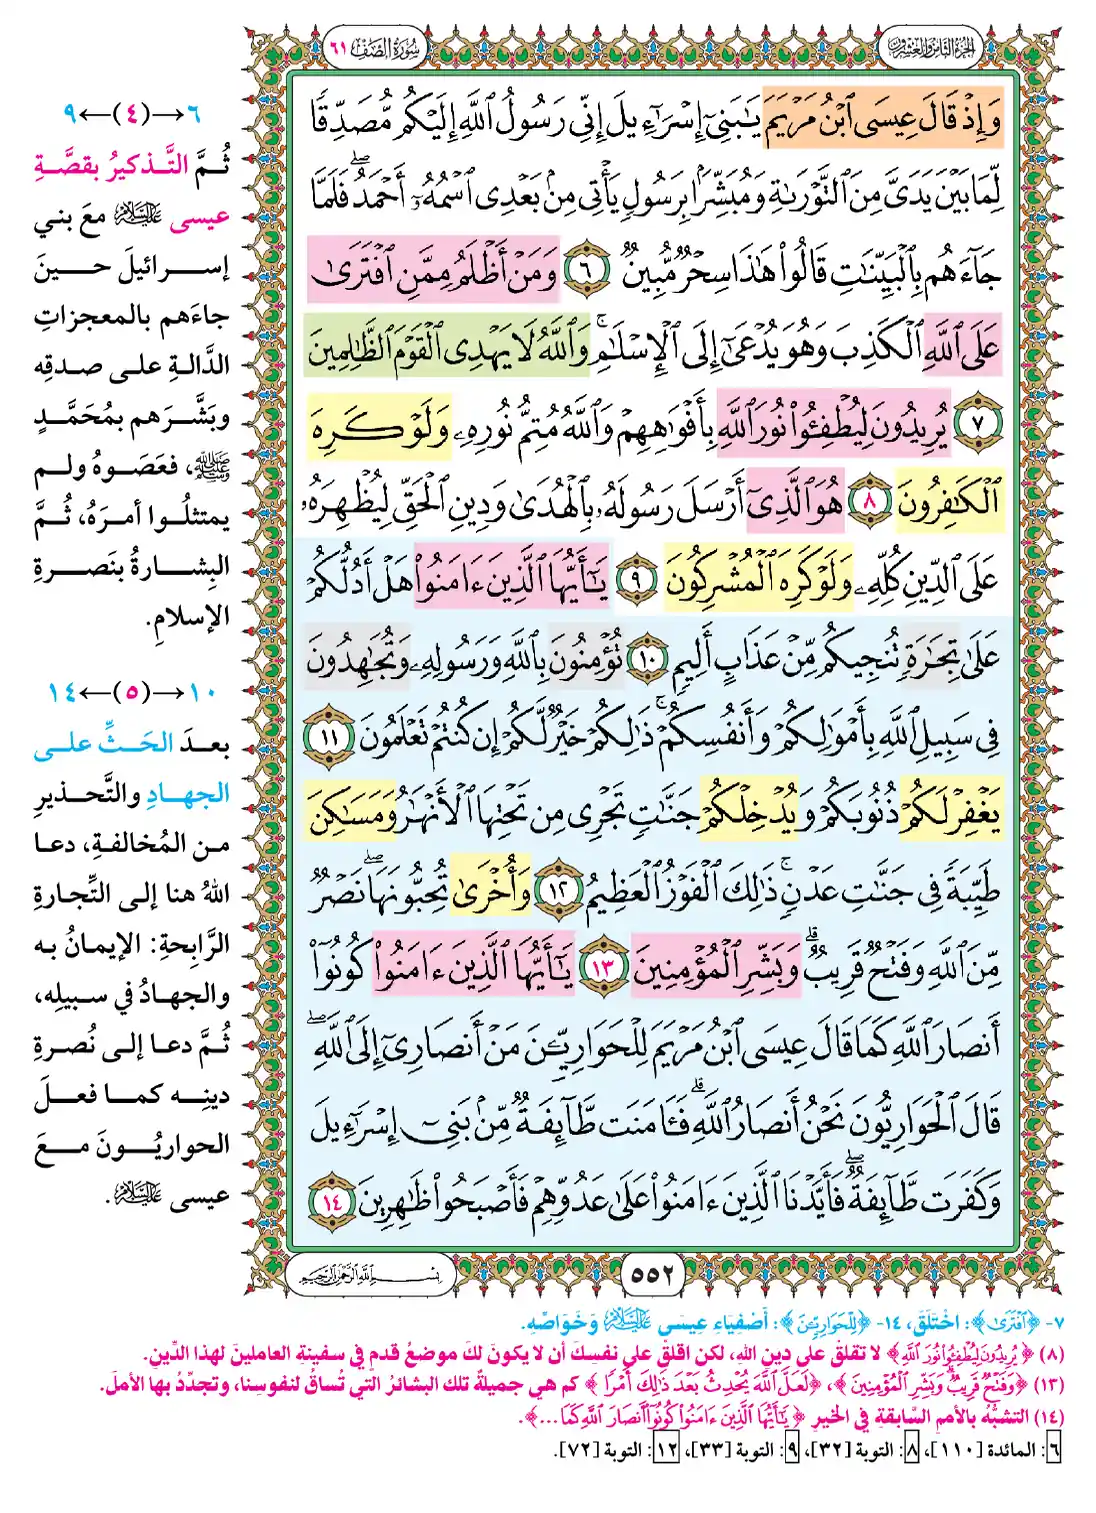 الجزء الثامن والعشرون
سورة الصف ٦١
وَإِذْ قَالَ عِيسَى ٱبْنُ مَرْيَمَ يَٰبَنِىٓ إِسْرَٰٓءِيلَ إِنِّى رَسُولُ ٱللَّهِ إِلَيْكُم مُّصَدِّقًا
لِّمَا بَيْنَ يَدَىَّ مِنَ ٱلتَّوْرَىٰةِ وَمُبَشِّرًۢا بِرَسُولٍ يَأْتِى مِنۢ بَعْدِى ٱسْمُهُۥٓ أَحْمَدُ ۖ فَلَمَّا
جَآءَهُم بِٱلْبَيِّنَٰتِ قَالُوا۟ هَٰذَا سِحْرٌ مُّبِينٌ ٦ وَمَنْ أَظْلَمُ مِمَّنِ ٱفْتَرَىٰ
عَلَى ٱللَّهِ ٱلْكَذِبَ وَهُوَ يُدْعَىٰٓ إِلَى ٱلْإِسْلَٰمِ ۚ وَٱللَّهُ لَا يَهْدِى ٱلْقَوْمَ ٱلظَّٰلِمِينَ
٧ يُرِيدُونَ لِيُطْفِـُٔوا۟ نُورَ ٱللَّهِ بِأَفْوَٰهِهِمْ وَٱللَّهُ مُتِمُّ نُورِهِۦ وَلَوْ كَرِهَ
ٱلْكَٰفِرُونَ ٨ هُوَ ٱلَّذِىٓ أَرْسَلَ رَسُولَهُۥ بِٱلْهُدَىٰ وَدِينِ ٱلْحَقِّ لِيُظْهِرَهُۥ
عَلَى ٱلدِّينِ كُلِّهِۦ وَلَوْ كَرِهَ ٱلْمُشْرِكُونَ ٩ يَٰٓأَيُّهَا ٱلَّذِينَ ءَامَنُوا۟ هَلْ أَدُلُّكُمْ
عَلَىٰ تِجَٰرَةٍ تُنجِيكُم مِّنْ عَذَابٍ أَلِيمٍ ١٠ تُؤْمِنُونَ بِٱللَّهِ وَرَسُولِهِۦ وَتُجَٰهِدُونَ
فِى سَبِيلِ ٱللَّهِ بِأَمْوَٰلِكُمْ وَأَنفُسِكُمْ ۚ ذَٰلِكُمْ خَيْرٌ لَّكُمْ إِن كُنتُمْ تَعْلَمُونَ ١١
يَغْفِرْ لَكُمْ ذُنُوبَكُمْ وَيُدْخِلْكُمْ جَنَّٰتٍ تَجْرِى مِن تَحْتِهَا ٱلْأَنْهَٰرُ وَمَسَٰكِنَ
طَيِّبَةً فِى جَنَّٰتِ عَدْنٍ ۚ ذَٰلِكَ ٱلْفَوْزُ ٱلْعَظِيمُ ١٢ وَأُخْرَىٰ تُحِبُّونَهَا ۖ نَصْرٌ
مِّنَ ٱللَّهِ وَفَتْحٌ قَرِيبٌ ۗ وَبَشِّرِ ٱلْمُؤْمِنِينَ ١٣ يَٰٓأَيُّهَا ٱلَّذِينَ ءَامَنُوا۟ كُونُوٓا۟
أَنصَارَ ٱللَّهِ كَمَا قَالَ عِيسَى ٱبْنُ مَرْيَمَ لِلْحَوَارِيِّۦنَ مَنْ أَنصَارِىٓ إِلَى ٱللَّهِ ۖ
قَالَ ٱلْحَوَارِيُّونَ نَحْنُ أَنصَارُ ٱللَّهِ ۖ فَـَٔامَنَت طَّآئِفَةٌ مِّنۢ بَنِىٓ إِسْرَٰٓءِيلَ
وَكَفَرَت طَّآئِفَةٌ ۖ فَأَيَّدْنَا ٱلَّذِينَ ءَامَنُوا۟ عَلَىٰ عَدُوِّهِمْ فَأَصْبَحُوا۟ ظَٰهِرِينَ ١٤
٥٥٢
بسم الله الرحمن الرحيم
٦→(٤)←٩
ثُمَّ التَّذكيرُ بقصَّةِ
عيسى عليه السلام معَ بني
إسرائيلَ حينَ
جاءَهم بالمعجزاتِ
الدَّالةِ على صدقِه
وبَشَّرَهم بمُحَمَّدٍ
ﷺ، فعَصَوهُ ولم
يمتثلُوا أمرَهُ، ثُمَّ
البِشارةُ بنَصرةِ
الإسلامِ.
١٠→(٥)←١٤
بعدَ الحَثِّ على
الجهادِ والتَّحذيرِ
من المُخالفةِ، دعا
اللهُ هنا إلى التِّجارةِ
الرَّابحةِ: الإيمانُ به
والجهادُ في سبيلِه،
ثُمَّ دعا إلى نُصرةِ
دينِه كما فعلَ
الحواريُّونَ معَ
عيسى عليه السلام.
٧- ﴿ٱفْتَرَىٰ﴾: اخْتَلَقَ، ١٤- ﴿لِلْحَوَارِيِّۦنَ﴾: أَصْفِيَاءِ عِيسَى عليه السلام وَخَوَاصِّهِ.
(٨) ﴿يُرِيدُونَ لِيُطْفِـُٔوا۟ نُورَ ٱللَّهِ﴾ لا تقلق على دينِ اللهِ، لكن اقلق على نفسِكَ أن لا يكونَ لكَ موضعُ قدمٍ في سفينةِ العاملينَ لهذا الدِّينِ.
(١٣) ﴿وَفَتْحٌ قَرِيبٌ وَبَشِّرِ ٱلْمُؤْمِنِينَ﴾، ﴿لَعَلَّ ٱللَّهَ يُحْدِثُ بَعْدَ ذَٰلِكَ أَمْرًا﴾ كم هي جميلةٌ تلك البشائرُ التي تُساقُ لنفوسِنا، وتجدِّدُ بها الأملَ.
(١٤) التشبُّه بالأممِ السَّابقةِ في الخيرِ ﴿يَٰٓأَيُّهَا ٱلَّذِينَ ءَامَنُوا۟ كُونُوٓا۟ أَنصَارَ ٱللَّهِ كَمَا...﴾.
٦: المائدة [١١٠]، ٨: التوبة [٣٢]، ٩: التوبة [٣٣]، ١٢: التوبة [٧٢].